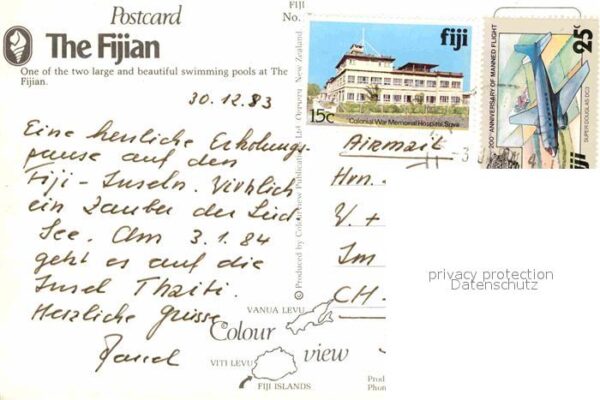 Postcard
The Fijian
One of the two large and beautiful swimming pools at The
Fijian.
30.12.83
Eine herrliche Erholungs-
pause auf den
Fiji-Inseln. Wirklich
ein Zauber der Süd
See. Am 3.1.84
geht es auf die
Insel Thaiti.
Herzliche Grüsse
FIJI
No.
© Produced by Colourview Publications Ltd New Zealand.
fiji
15c
Colonial War Memorial Hospital, Suva
200TH ANNIVERSARY OF MANNED FLIGHT
25c
SUPER DOUGLAS DC3
fiji
Airmail
Hrn.
V. +
Im
CH-
privacy protection
Datenschutz
VANUA LEVU
Colour
view
VITI LEVU
FIJI ISLANDS
Prod
Phot